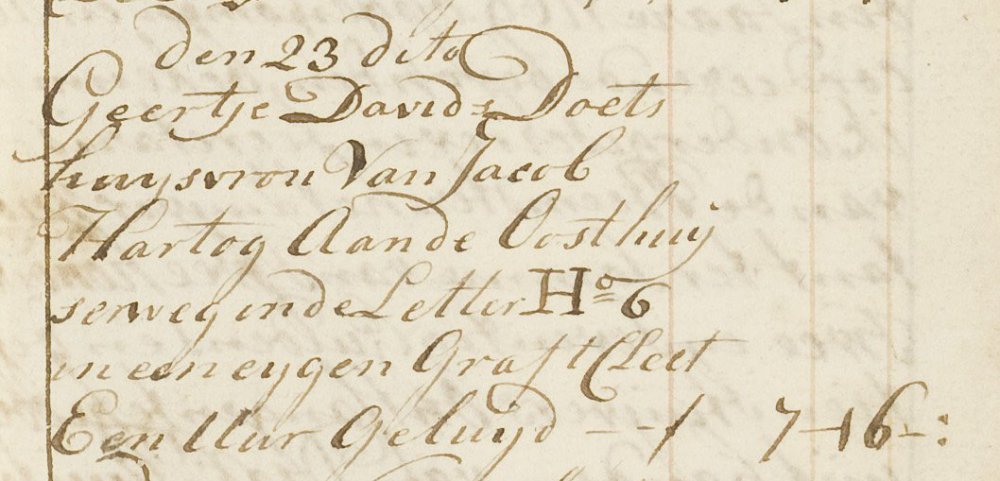 den 23 dito
Geertje Davids Doets
huysvrou Van Jacob
Hartog Aande Oosthuij
serweg inde Letter H=o 6
in een eygen Graft Cleet
Een Uur Geluijd --- / 7-16-: